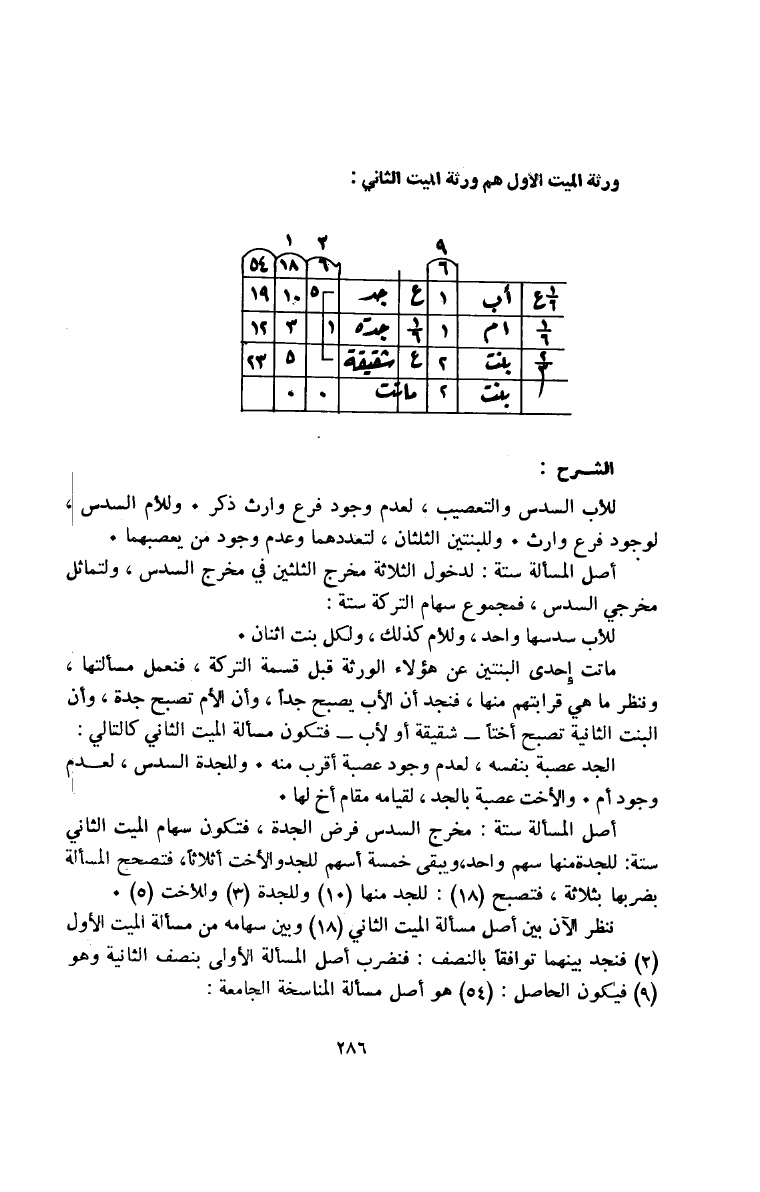 ورثة الميت الأول هم ورثة الميت الثاني :
٩ ٣ ١
٦ ٦ ١٨ ٥٤
١/٦ ع أب ١ ع جد ٥ ١٠ ١٩
١/٦ ام ١ ١/٦ جدّة ١ ٣ ١٢
٢/٣ بنت ٢ ع شقيقة ٥ ٢٣
بنت ٢ ماتت ٠ ٠
الشرح :
للأب السدس والتعصيب ، لعدم وجود فرع وارث ذكر ٠ وللأم السدس ،
لوجود فرع وارث ٠ وللبنتين الثلثان ، لتعددهما وعدم وجود من يعصبهما ٠
أصل المسألة ستة : لدخول الثلاثة مخرج الثلثين في مخرج السدس ، ولتماثل
مخرجي السدس ، فمجموع سهام التركة ستة :
للأب سدسها واحد ، وللأم كذلك ، ولكل بنت اثنان ٠
ماتت إحدى البنتين عن هؤلاء الورثة قبل قسمة التركة ، فنعمل مسألتها ،
وننظر ما هي قرابتهم منها ، فنجد أن الأب يصبح جداً ، وأن الأم تصبح جدة ، وأن
البنت الثانية تصبح أختاً — شقيقة أو لأب — فتكون مسألة الميت الثاني كالتالي :
الجد عصبة بنفسه ، لعدم وجود عصبة أقرب منه ٠ وللجدة السدس ، لعــدم
وجود أم ٠ والأخت عصبة بالجد ، لقيامه مقام أخ لها ٠
أصل المسألة ستة : مخرج السدس فرض الجدة ، فتكون سهام الميت الثاني
ستة: للجدةمنها سهم واحد،ويبقى خمسة أسهم للجدوالأخت أثلاثاً، فتصحح المسألة
بضربها بثلاثة ، فتصبح (١٨) : للجد منها (١٠) وللجدة (٣) وللأخت (٥) ٠
ننظر الآن بين أصل مسألة الميت الثاني (١٨) وبين سهامه من مسألة الميت الأول
(٢) فنجد بينهما توافقاً بالنصف : فنضرب أصل المسألة الأولى بنصف الثانية وهو
(٩) فيكون الحاصل : (٥٤) هو أصل مسألة المناسخة الجامعة :
٢٨٦